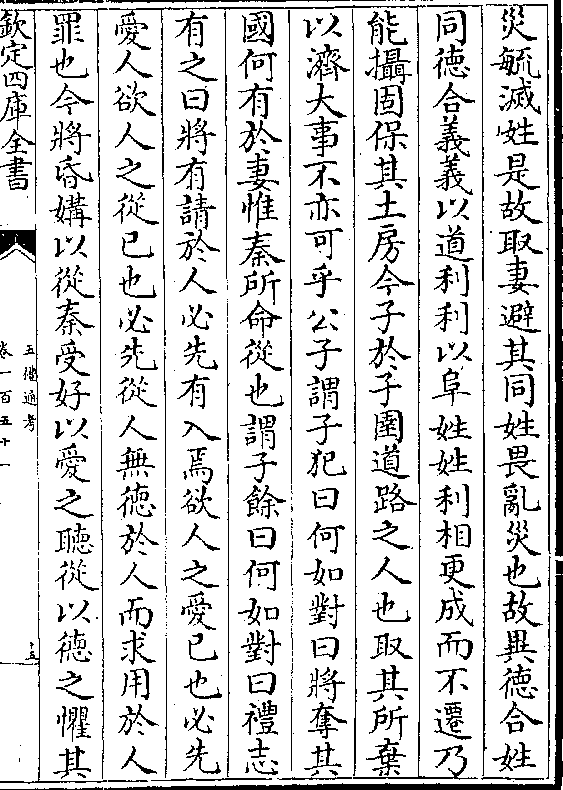 災毓滅姓是故取妻避其同姓畏亂災也故異德合姓
同德合義義以道利利以阜姓姓利相更成而不遷乃
能攝固保其土房今子於子圉道路之人也取其所棄
以濟大事不亦可乎公子謂子犯曰何如對曰將奪其
國何有於妻惟秦所命從也謂子餘曰何如對曰禮志
有之曰將有請於人必先有入焉欲人之愛已也必先
愛人欲人之從已也必先從人無德於人而求用於人
罪也今將昏媾以從秦受好以愛之聽從以德之懼其
欽定四庫全書
五禮通考
卷一百五十一
十五